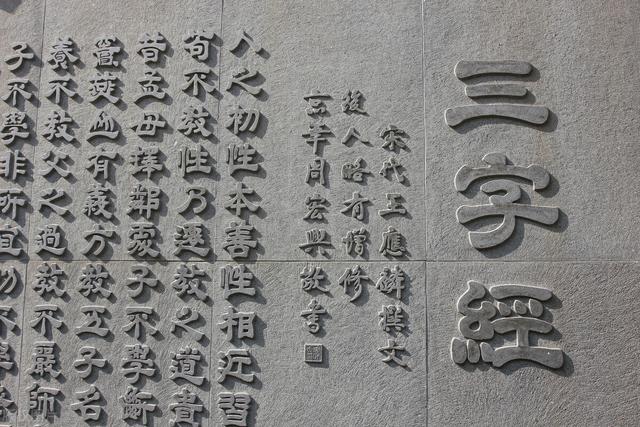 三字經
宋代王應麟撰文
後人略有增修
年周宏興敬書
人之初性本善性相近習
苟不教性乃遷教之道貴
昔孟母擇鄰處子不學斷
竇燕山有義方教五子名
養不教父之過教不嚴師
子不學非所宜幼不學